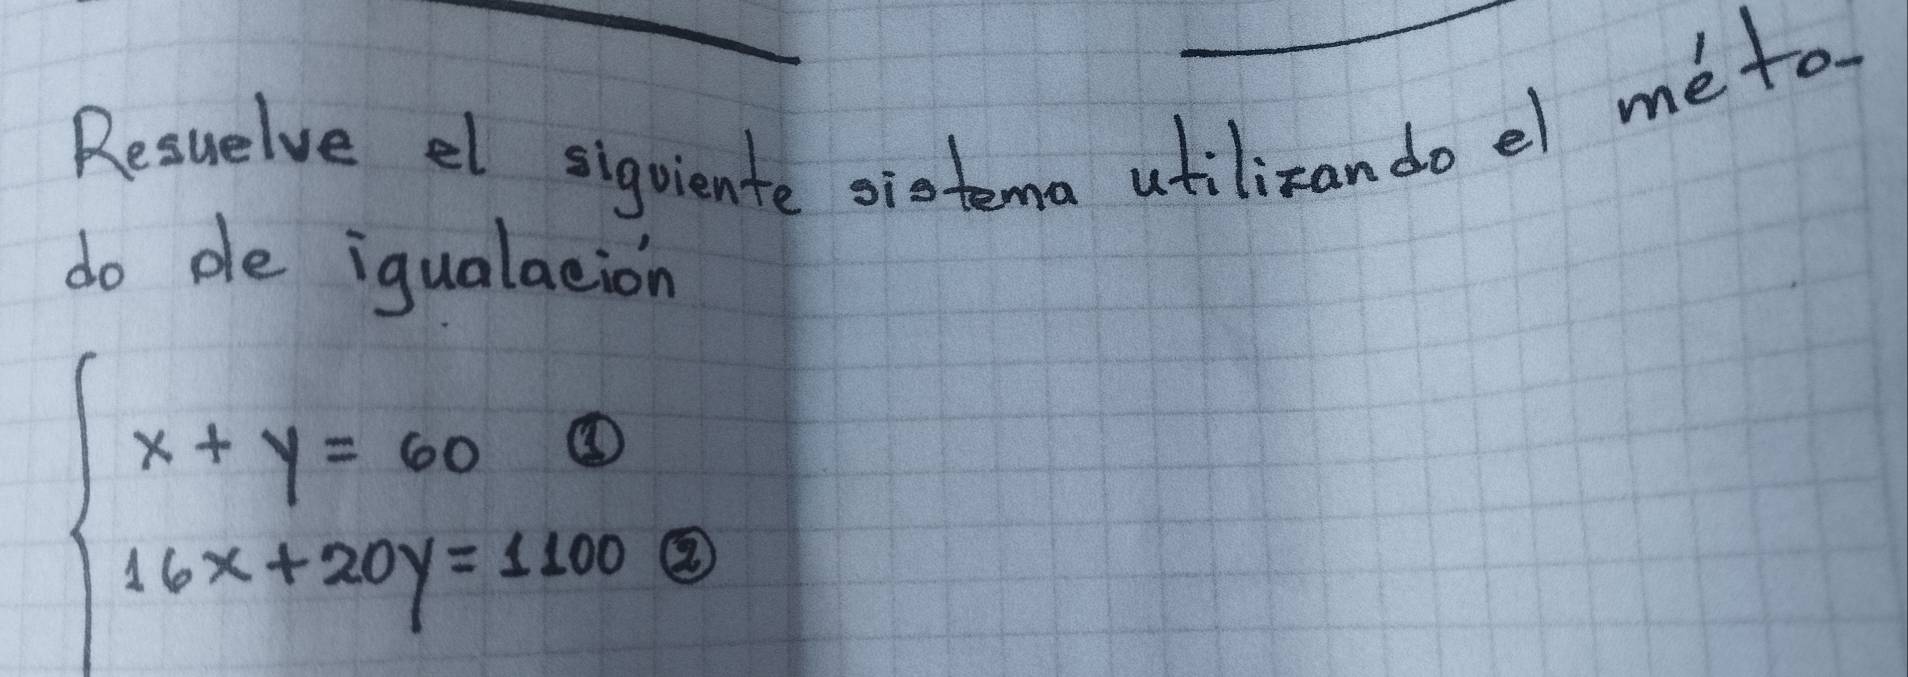 Resuelve el siguiente sistema utilizando el méto-
do de igualación
x + y = 60 ①
16x + 20y = 1100 ②